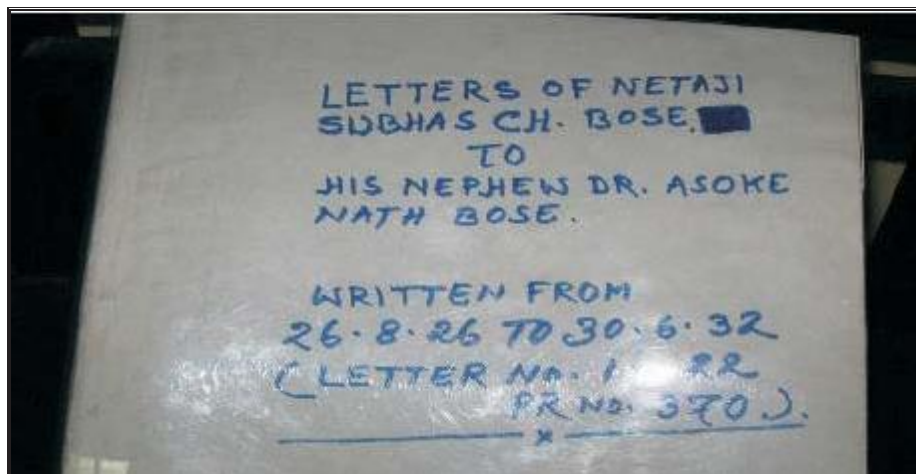 LETTERS OF NETAJI
SUBHAS CH. BOSE.
TO
HIS NEPHEW DR. ASOKE
NATH BOSE.
WRITTEN FROM
26.8.26 TO 30.6.32
(LETTER NO. 1 22
PR NO. 370.).